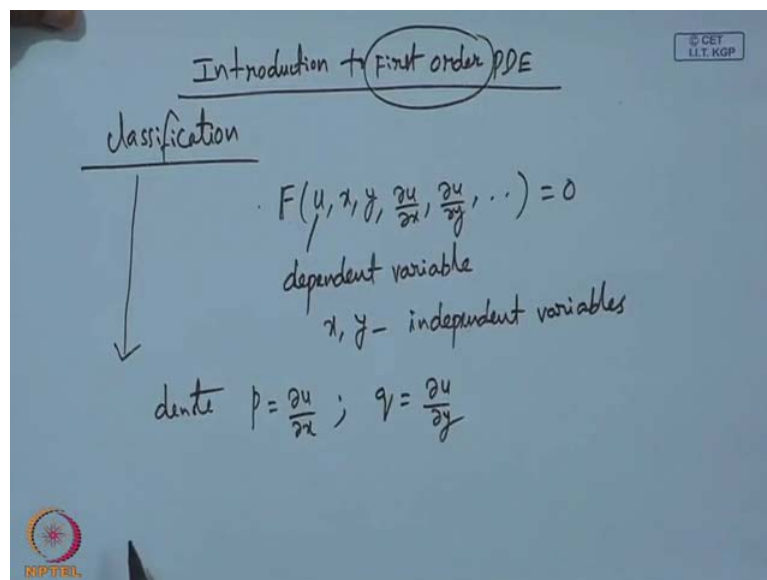 Introduction to First order PDE
© CET
I.I.T. KGP
classification
F(u, x, y, ∂u/∂x, ∂u/∂y, ..) = 0
dependent variable
x, y - independent variables
denote p = ∂u/∂x ; q = ∂u/∂y
NPTEL